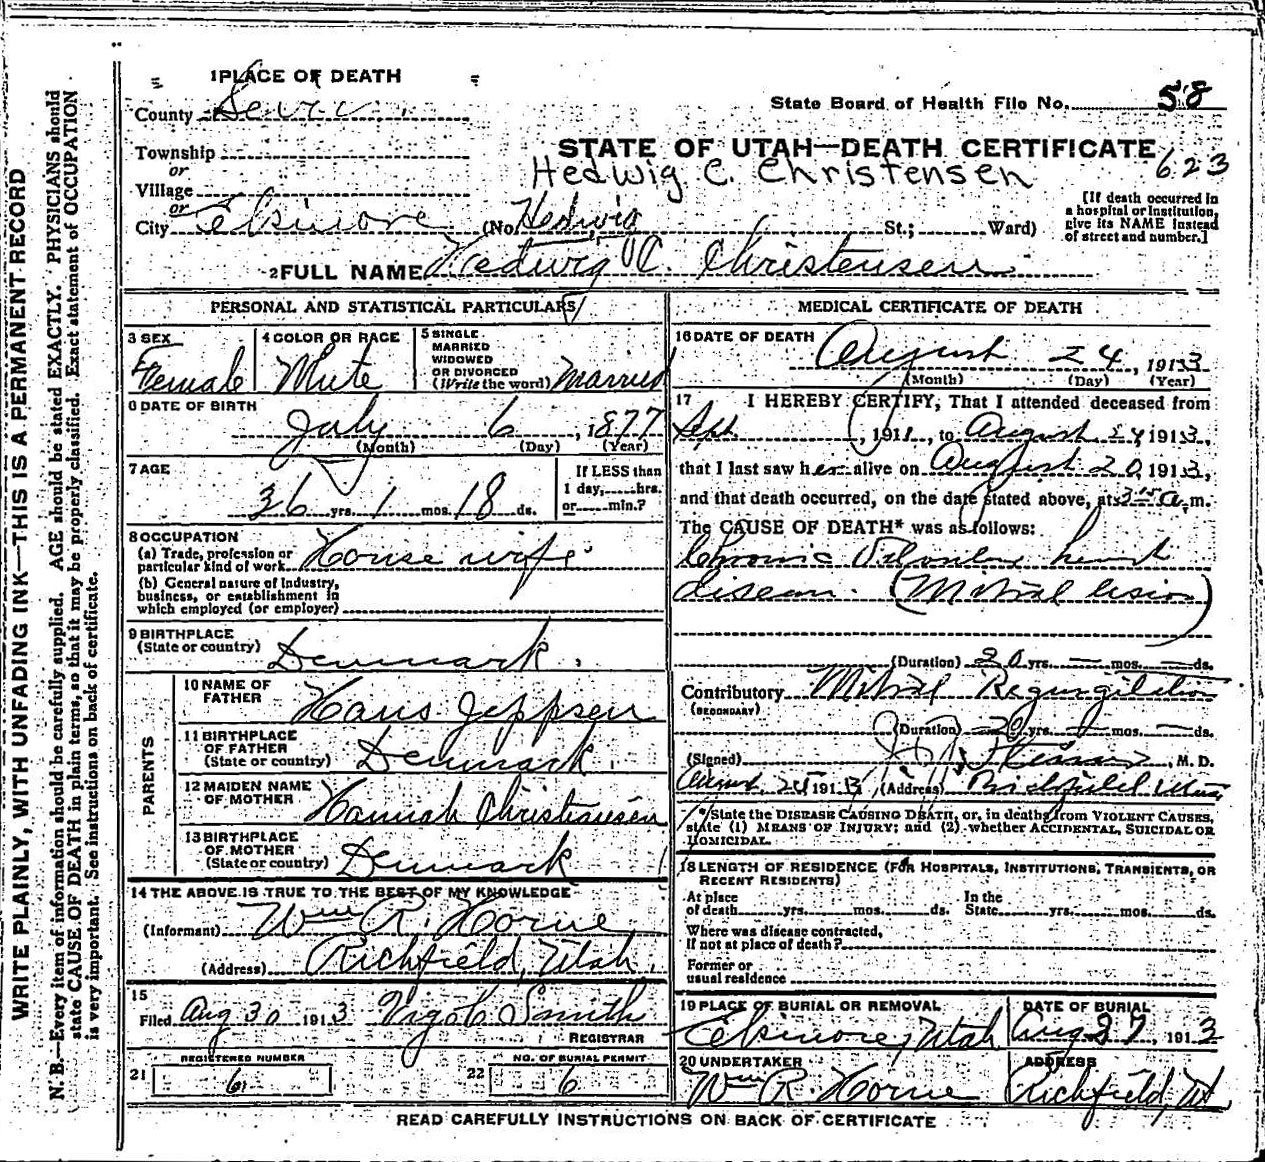 1 PLACE OF DEATH
County Sevier
State Board of Health File No. 58
Township
or
Village
or
City Elsinore (No. St.; Ward)
STATE OF UTAH—DEATH CERTIFICATE
623
Hedwig C. Christensen
[If death occurred in a hospital or institution, give its NAME instead of street and number.]
Hedwig
2 FULL NAME Hedwig C. Christensen
PERSONAL AND STATISTICAL PARTICULARS
3 SEX
Female
4 COLOR OR RACE
White
5 SINGLE
MARRIED
WIDOWED
OR DIVORCED
(Write the word) Married
6 DATE OF BIRTH
July 6, 1877
(Month) (Day) (Year)
7 AGE
36 yrs. 1 mos. 18 ds.
If LESS than
1 day, hrs.
or min.?
8 OCCUPATION
(a) Trade, profession or
particular kind of work House wife
(b) General nature of Industry,
business, or establishment in
which employed (or employer)
9 BIRTHPLACE
(State or country) Denmark
PARENTS
10 NAME OF
FATHER Hans Jeppsen
11 BIRTHPLACE
OF FATHER
(State or country) Denmark
12 MAIDEN NAME
OF MOTHER Hannah Christiansen
13 BIRTHPLACE
OF MOTHER
(State or country) Denmark
14 THE ABOVE IS TRUE TO THE BEST OF MY KNOWLEDGE
(Informant) Wm R. Horne
(Address) Richfield, Utah.
15
Filed Aug 30 1913 Smith
REGISTRAR
REGISTERED NUMBER
21 6
NO. OF BURIAL PERMIT
22 6
MEDICAL CERTIFICATE OF DEATH
16 DATE OF DEATH
August 24, 1913
(Month) (Day) (Year)
17 I HEREBY CERTIFY, That I attended deceased from
Sept. , 1911, to August 24 1913,
that I last saw her alive on August 20, 1913,
and that death occurred, on the date stated above, at 3 15 a.m.
The CAUSE OF DEATH* was as follows:
Chronic Valvular heart
disease. (Mitral lesion)
(Duration) 20 yrs. — mos. — ds.
Contributory Mitral Regurgitation
(SECONDARY)
(Duration) 20 yrs. — mos. — ds.
(Signed) , M. D.
August 24 1913 (Address) Richfield Utah
*State the DISEASE CAUSING DEATH, or, in deaths from VIOLENT CAUSES,
state (1) MEANS OF INJURY; and (2) whether ACCIDENTAL, SUICIDAL OR
HOMICIDAL.
18 LENGTH OF RESIDENCE (FOR HOSPITALS, INSTITUTIONS, TRANSIENTS, OR
RECENT RESIDENTS)
At place In the
of death yrs. mos. ds. State yrs. mos. ds.
Where was disease contracted,
If not at place of death?
Former or
usual residence
19 PLACE OF BURIAL OR REMOVAL
Elsinore, Utah
DATE OF BURIAL
Aug 27, 1913
20 UNDERTAKER
Wm R. Horne
ADDRESS
Richfield, Ut
READ CAREFULLY INSTRUCTIONS ON BACK OF CERTIFICATE
WRITE PLAINLY, WITH UNFADING INK—THIS IS A PERMANENT RECORD
N. B.—Every item of information should be carefully supplied. AGE should be stated EXACTLY. PHYSICIANS should
state CAUSE OF DEATH in plain terms, so that it may be properly classified. Exact statement of OCCUPATION
is very important. See instructions on back of certificate.